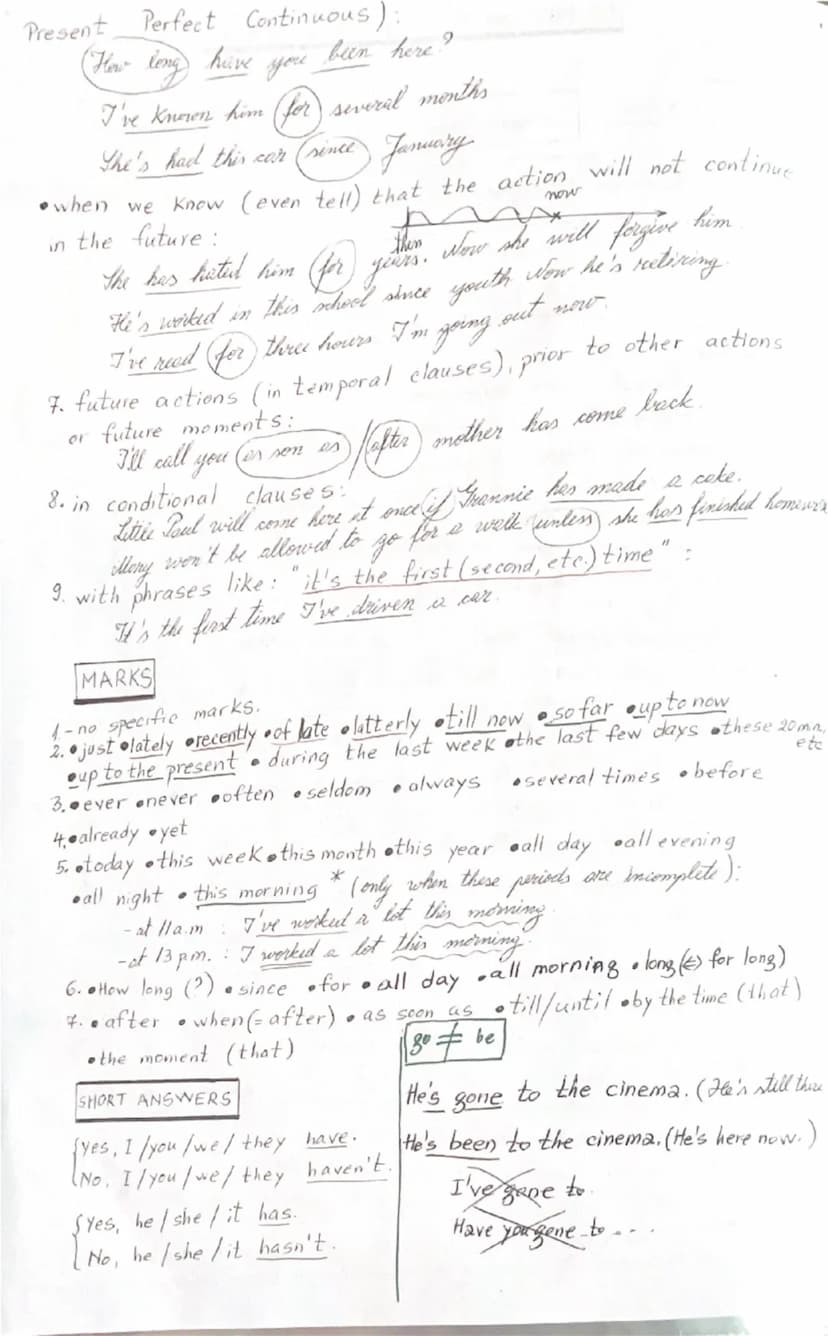 Present Perfect Continuous):
(How long) have you been here?
I've known him (for) several months
She's had this car (since) January
•when we know (even tell) that the action will not continue
now
in the future:
then
She has hated him (for) years. Now she will forgive him.
He's worked in this school since youth Now he's retiring.
I've read (for) three hours I'm going out now.
7. future actions (in temporal clauses), prior to other actions
or future moments:
I'll call you (as son as)/(after) mother has come back.
8. in conditional clauses:
Little Paul will come here at once (if) Grannie has made a cake.
Mary won't be allowed to go for a walk (unless) she has finished homework
9. with phrases like: "it's the first (second, etc.) time":
It's the first time I've driven a car.
MARKS
1-no specific marks.
2. •just •lately •recently •of late •latterly •till now •so far •up to now
•up to the present • during the last week •the last few days •these 20 mn,
etc
3. •ever •never •often •seldom •always •several times •before
4. •already •yet
5. •today •this week •this month •this year •all day •all evening
•all night •this morning * (only when these periods are incomplete):
- at 11 a.m : I've worked a lot this morning.
- at 13 p.m. : I worked a lot this morning.
6. •How long (?) •since •for •all day •all morning •long (⇔ for long)
7. •after •when (= after) •as soon as •till/until •by the time (that)
•the moment (that)
go ≠ be
SHORT ANSWERS
He's gone to the cinema. (He's still there
He's been to the cinema. (He's here now.)
I've gone to.
Have you gone to ....
{Yes, I /you /we / they have.
No, I /you /we / they haven't.
{Yes, he / she / it has.
No, he / she / it hasn't.